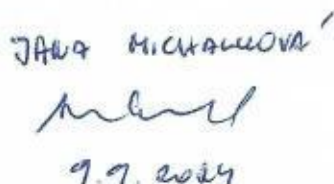 JANA MICHALKOVÁ
9.9.2024